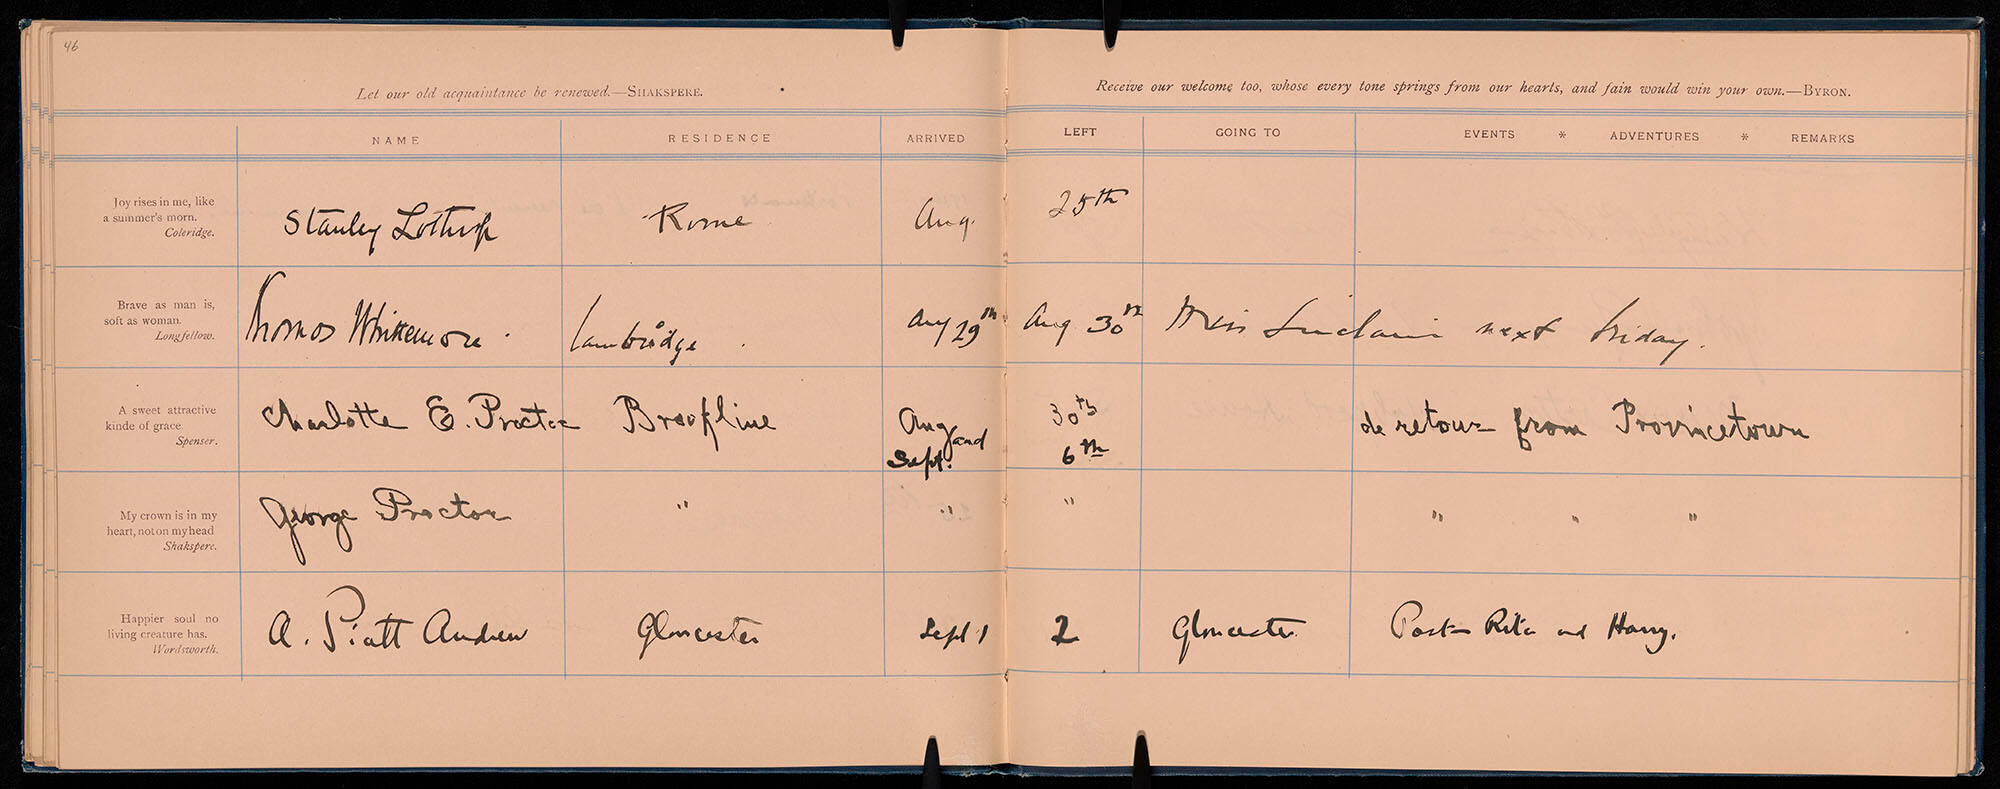 46
Let our old acquaintance be renewed.—SHAKSPERE.
Receive our welcome too, whose every tone springs from our hearts, and fain would win your own.—BYRON.
NAME RESIDENCE ARRIVED LEFT GOING TO EVENTS * ADVENTURES * REMARKS
Joy rises in me, like
a summer's morn.
Coleridge.
Stanley Lothrop Rome Aug. 25th
Brave as man is,
soft as woman.
Longfellow.
Thomas Whittemore. Cambridge. Aug 29th Aug 30th Miss Sinclair next Friday.
A sweet attractive
kinde of grace.
Spenser.
Charlotte E. Proctor Brookline Aug and 30th de retour from Provincetown
Sept. 6th
My crown is in my
heart, not on my head
Shakspere.
George Proctor " " " " " "
Happier soul no
living creature has.
Wordsworth.
A. Piatt Andrew Gloucester Sept 1 2 Gloucester. Post-Rita and Harry.